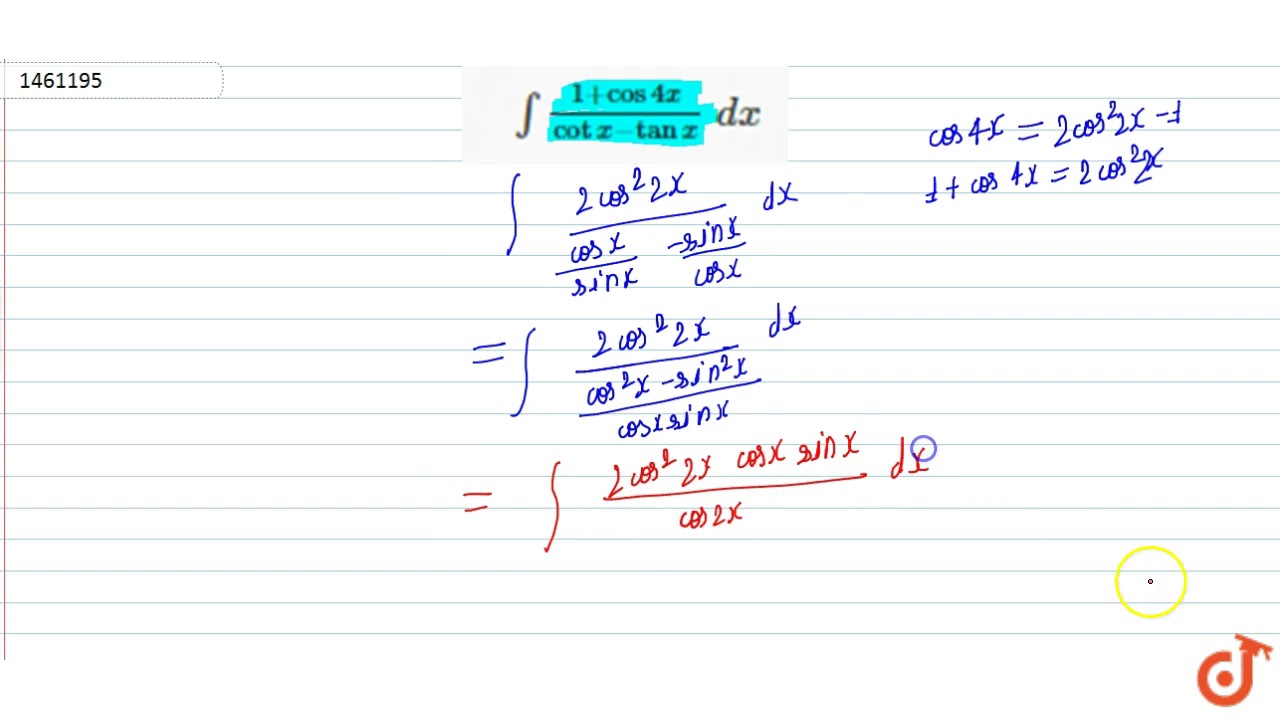 1461195
∫ (1+cos 4x)/(cot x − tan x) dx
cos 4x = 2cos²2x − 1
1 + cos 4x = 2cos²2x
∫ (2cos²2x)/((cos x)/(sin x) (−sin x)/(cos x)) dx
= ∫ (2cos²2x)/((cos²x − sin²x)/(cos x sin x)) dx
= ∫ (2cos²2x cos x sin x)/(cos 2x) dx